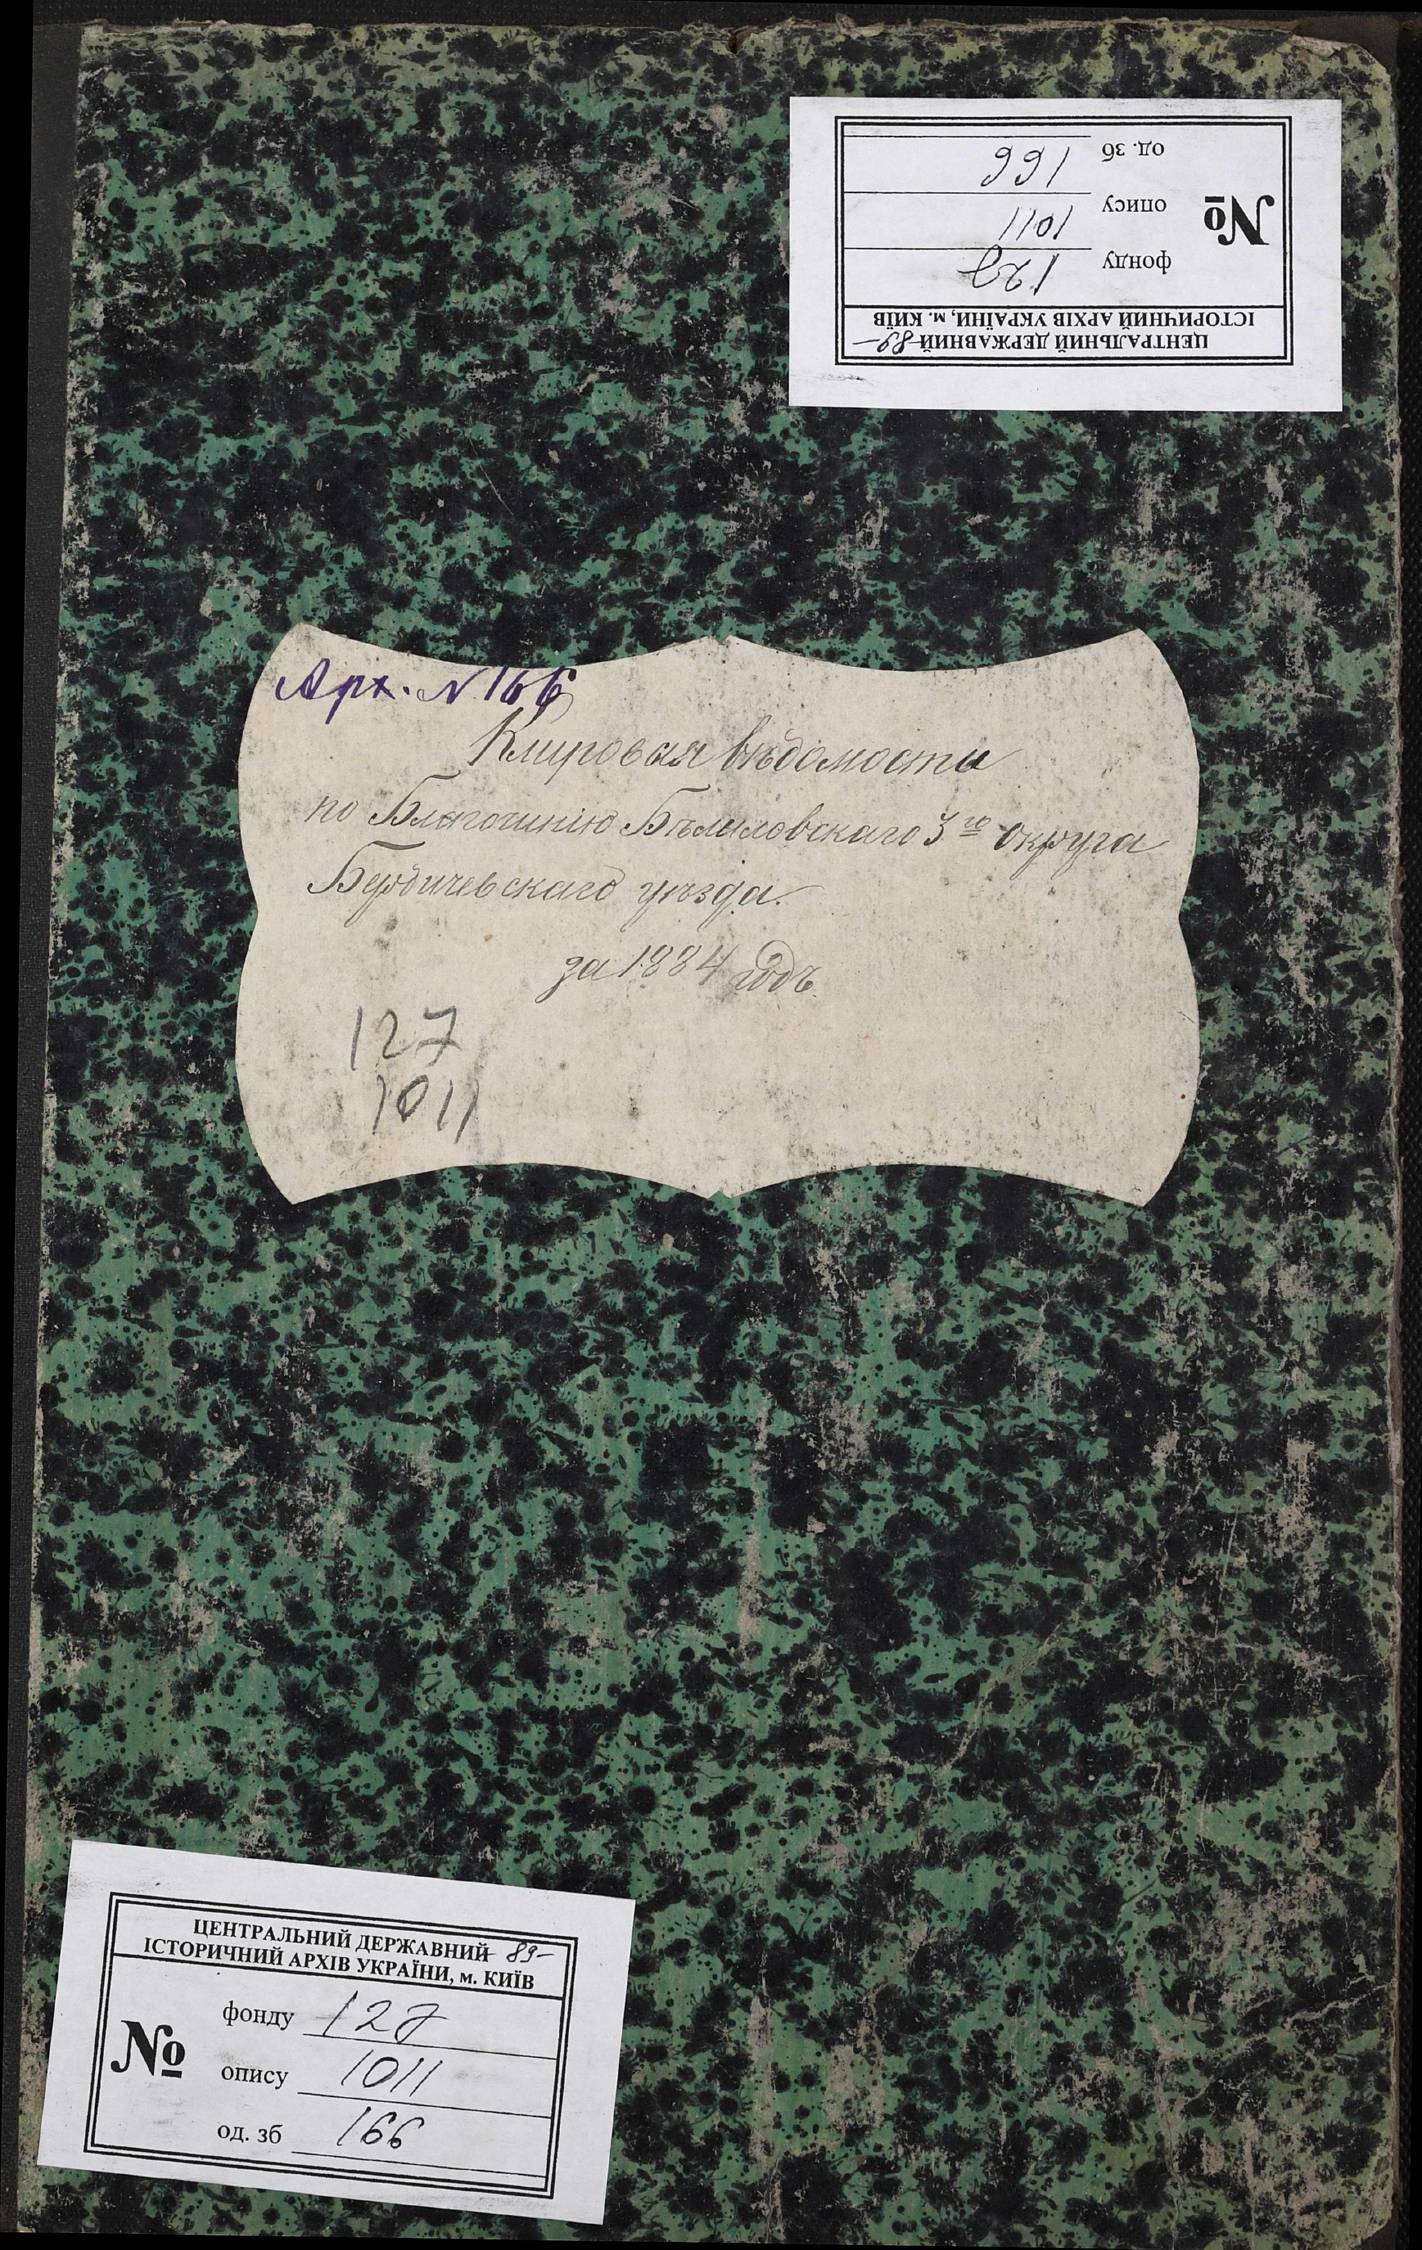 од. зб 166
опису 1011
№
фонду 127
ІСТОРИЧНИЙ АРХІВ УКРАЇНИ, м. КИЇВ
ЦЕНТРАЛЬНИЙ ДЕРЖАВНИЙ -89-
Арх. N 166
Клировая вѣдомости
по Благочинію Бѣлиловскаго 3го округа
Бердичевскаго уѣзда.
за 1884 годъ.
127
1011
ЦЕНТРАЛЬНИЙ ДЕРЖАВНИЙ -89-
ІСТОРИЧНИЙ АРХІВ УКРАЇНИ, м. КИЇВ
фонду 127
№
опису 1011
од. зб 166